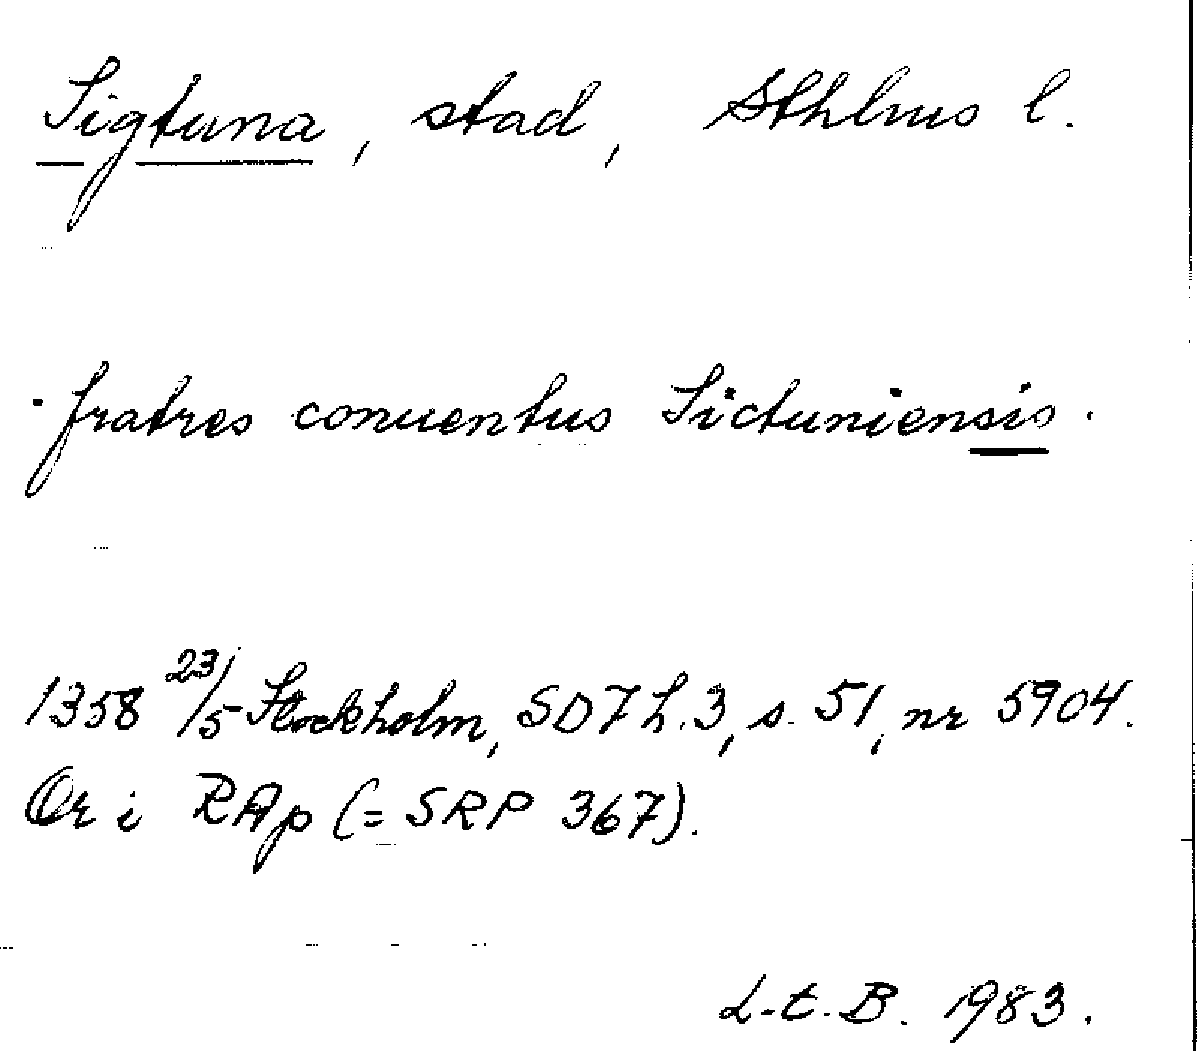 Sigtuna, stad, Sthlms l.
fratres conuentus Sictuniensis.
1358 23/5 Stockholm, SD 7 h. 3, s. 51, nr 5904.
Or i RAp (= SRP 367).
L-E. B. 1983.